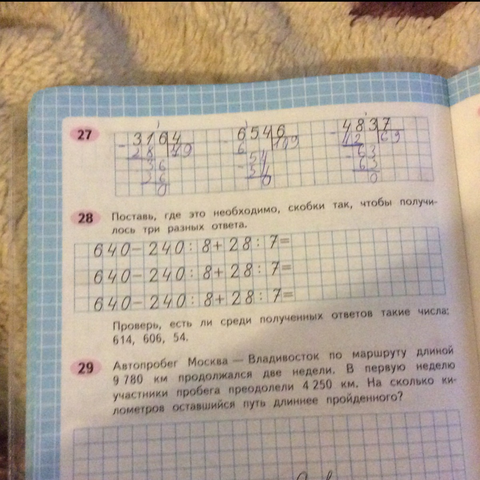 27
3164 6546 4837
28 79 6 109 42 69
36 54 63
36 54 63
0 0 0
28 Поставь, где это необходимо, скобки так, чтобы получи-
лось три разных ответа.
640-240:8+28:7=
640-240:8+28:7=
640-240:8+28:7=
Проверь, есть ли среди полученных ответов такие числа:
614, 606, 54.
29 Автопробег Москва — Владивосток по маршруту длиной
9 780 км продолжался две недели. В первую неделю
участники пробега преодолели 4 250 км. На сколько ки-
лометров оставшийся путь длиннее пройденного?